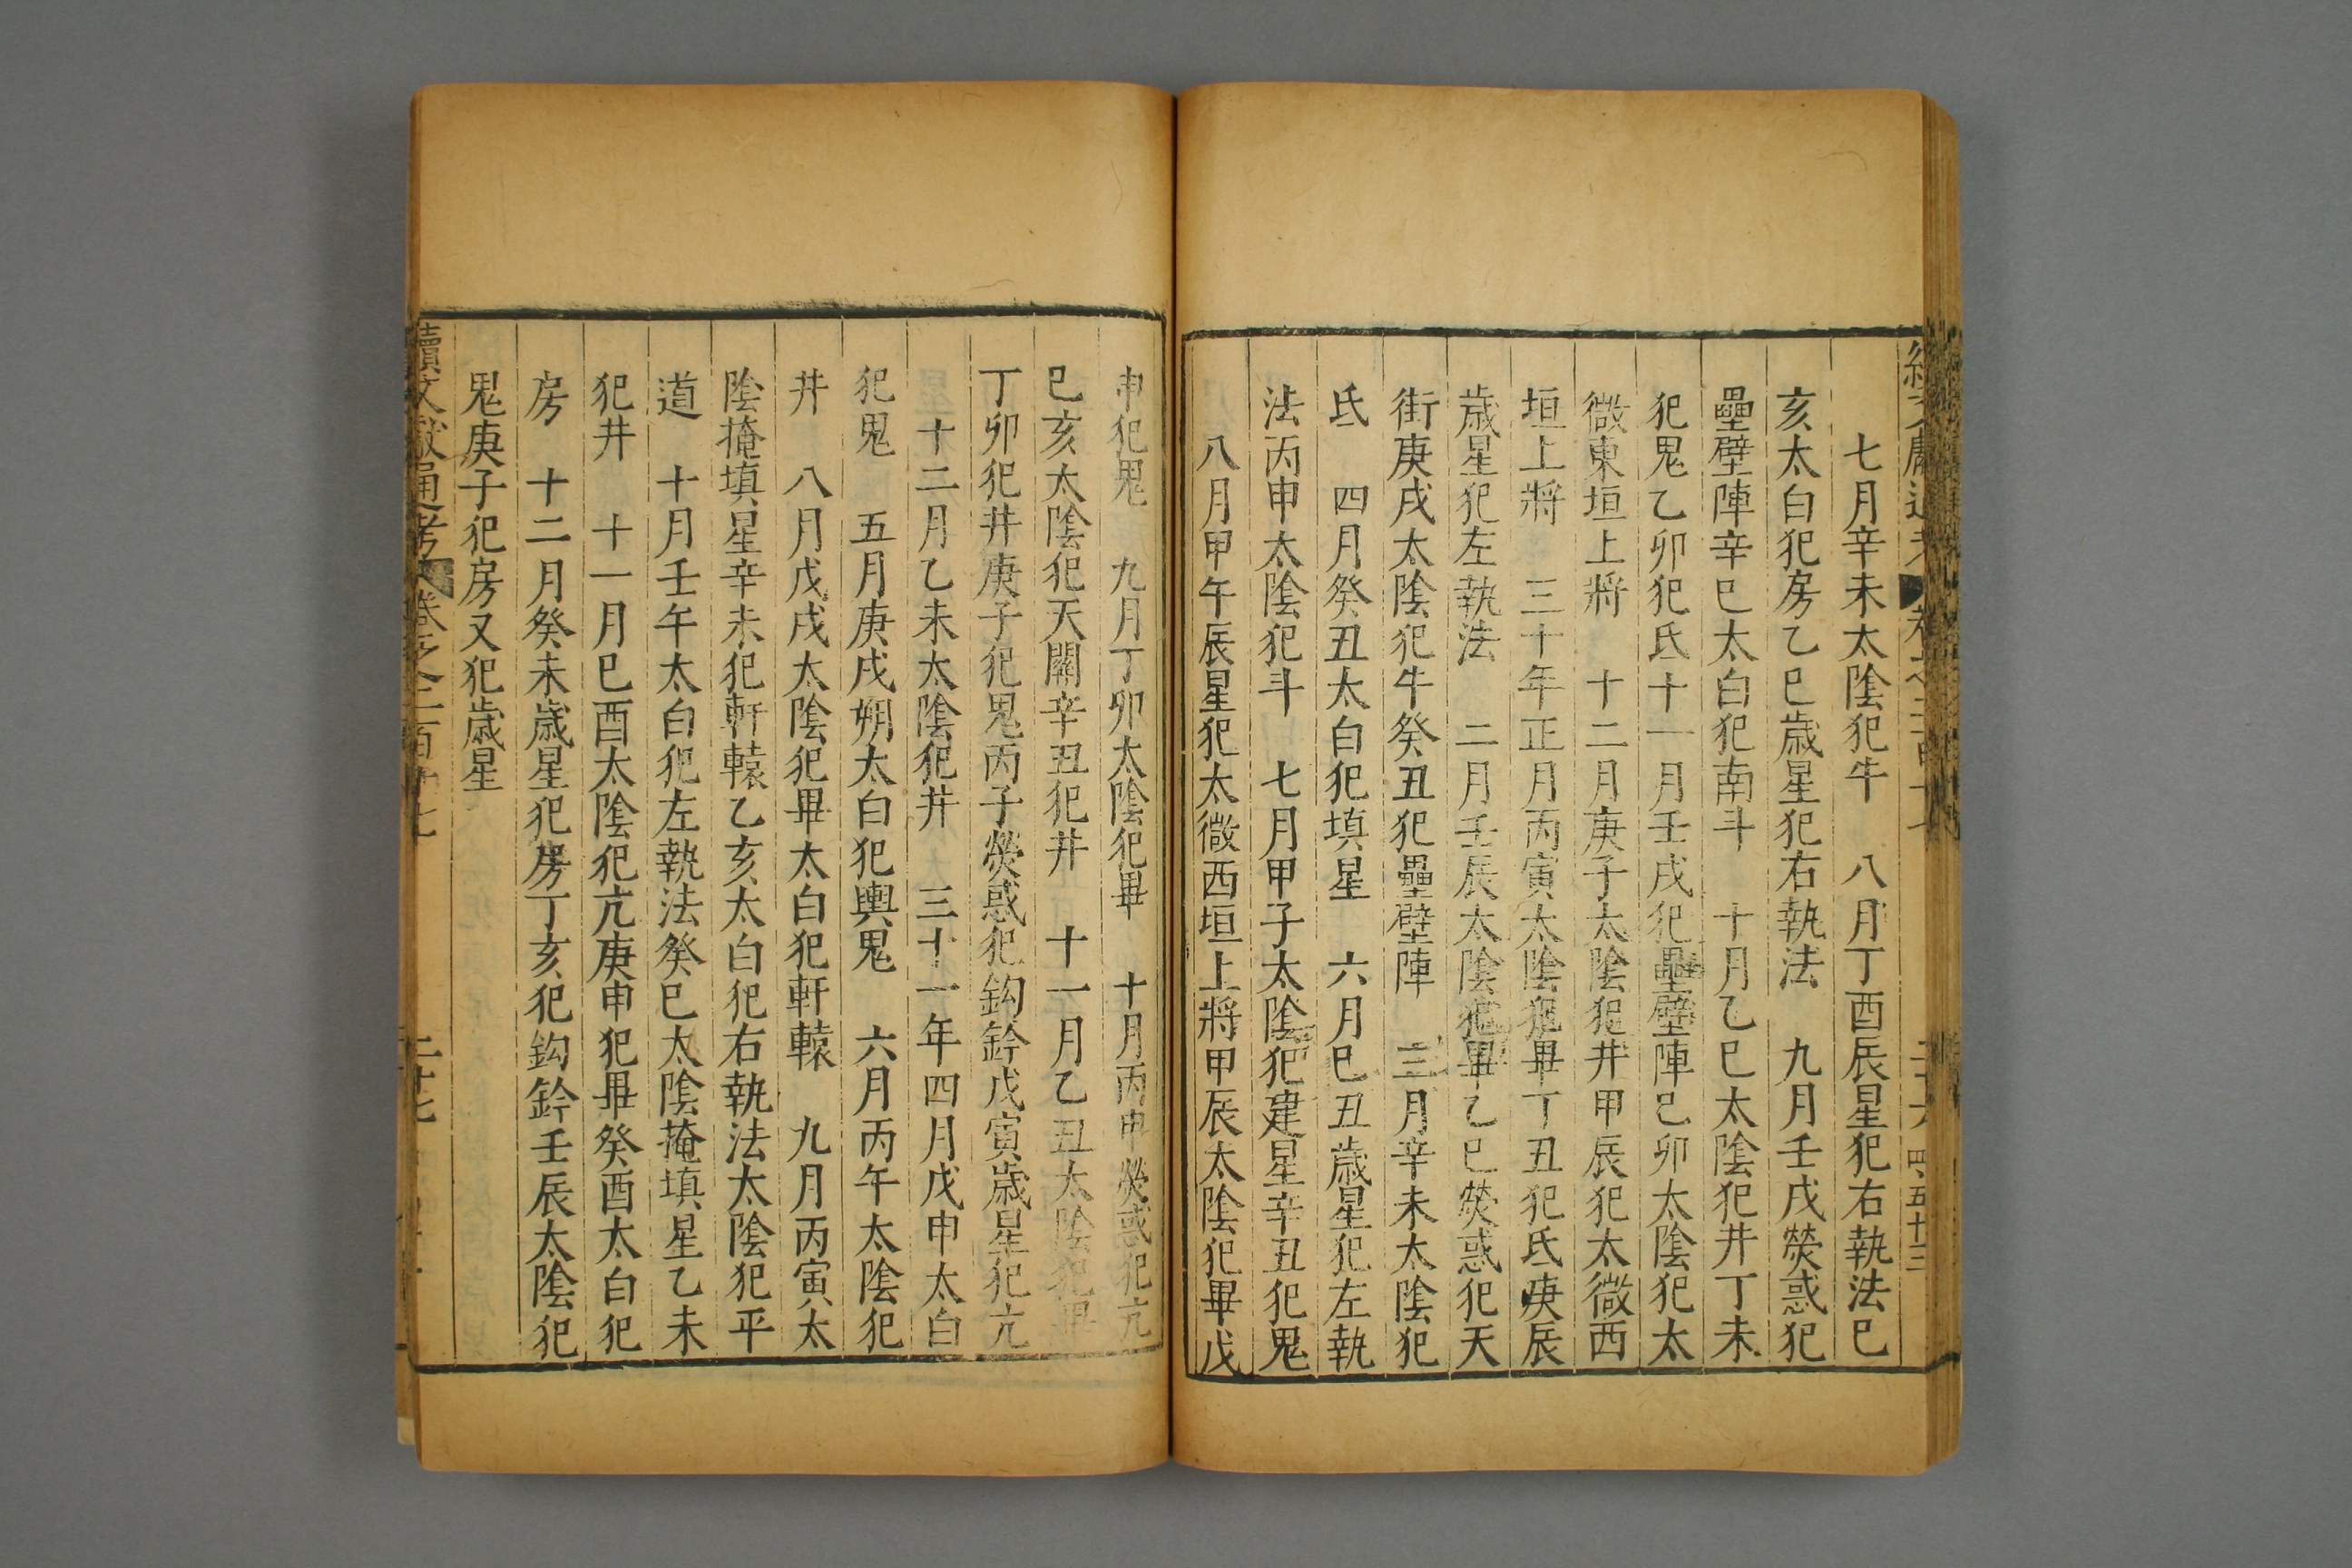 七月辛未太陰犯牛　八月丁酉辰星犯右執法巳
亥太白犯房乙巳歳星犯右執法　九月壬戌熒惑犯
壘壁陣辛巳太白犯南斗　十月乙巳太陰犯井丁未
犯鬼乙卯犯氐十一月壬戌犯壘壁陣巳卯太陰犯太
微東垣上將　十二月庚子太陰犯井甲辰犯太微西
垣上將　三十年正月丙寅太陰犯畢丁丑犯氐庚辰
歳星犯左執法　二月壬辰太陰犯畢乙巳熒惑犯天
街庚戌太陰犯牛癸丑犯壘壁陣　三月辛未太陰犯
氐　四月癸丑太白犯填星　六月巳丑歳星犯左執
法丙申太陰犯斗　七月甲子太陰犯建星辛丑犯鬼
八月甲午辰星犯太微西垣上將甲辰太陰犯畢戊
申犯鬼　九月丁卯太陰犯畢　十月丙申熒惑犯亢
巳亥太陰犯天關辛丑犯井　十一月乙丑太陰犯畢
丁卯犯井庚子犯鬼丙子熒惑犯鈎鈐戊寅歳星犯亢
十二月乙未太陰犯井　三十一年四月戊申太白
犯鬼　五月庚戌朔太白犯輿鬼　六月丙午太陰犯
井　八月戊戌太陰犯畢太白犯軒轅　九月丙寅太
陰掩填星辛未犯軒轅乙亥太白犯右執法太陰犯平
道　十月壬午太白犯左執法癸巳太陰掩填星乙未
犯井　十一月巳酉太陰犯亢庚申犯畢癸酉太白犯
房　十二月癸未歳星犯房丁亥犯鈎鈐壬辰太陰犯
鬼庚子犯房又犯歳星
續文獻通考　卷之二百十七　二十七